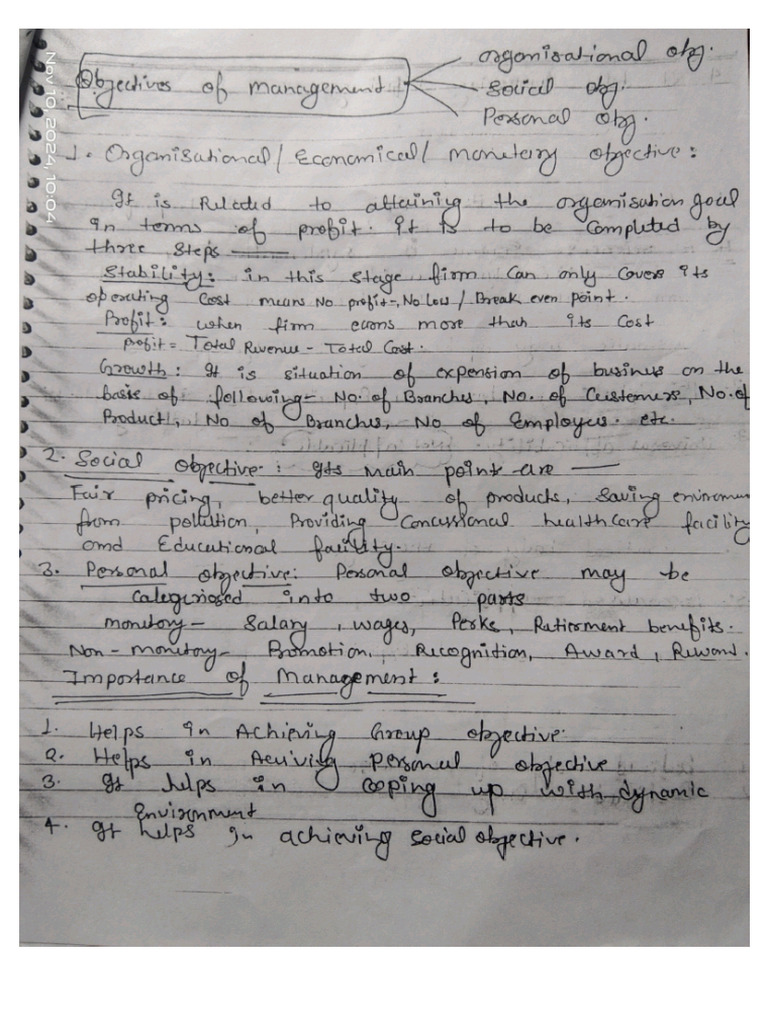 Organisational obj.
Objectives of management
Social obj.
Personal obj.
1. Organisational / Economical / monetary objective :
It is Related to attaining the organisation goal
in terms of profit. it is to be Completed by
three Steps —
Stability : in this stage firm Can only Covers its
operating Cost means No profit, No Low / Break even point.
Profit : when firm earns more than its Cost
profit = Total Revenue - Total Cost.
Growth : It is situation of expension of business on the
basis of following - No. of Branches, No. of Customers, No. of
Product, No of Branches, No of Employees. etc.
2. Social objective : Its main point are —
Fair pricing, better quality of products, Saving
from pollution, Providing Concussional healthcare facility
and Educational facility.
3. Personal objective : Personal objective may be
Categoriosed into two parts
monetory - Salary, wages, Perks, Retirment benefits.
Non - monetory - Promotion, Recognition, Award, Reward.
Importance of Management :
1. Helps in Achieving Group objective.
2. Helps in Acriving personal objective
3. It helps in cooping up with dynamic
Environment
4. It helps in achieving social objective.
Nov 10, 2024, 10:04